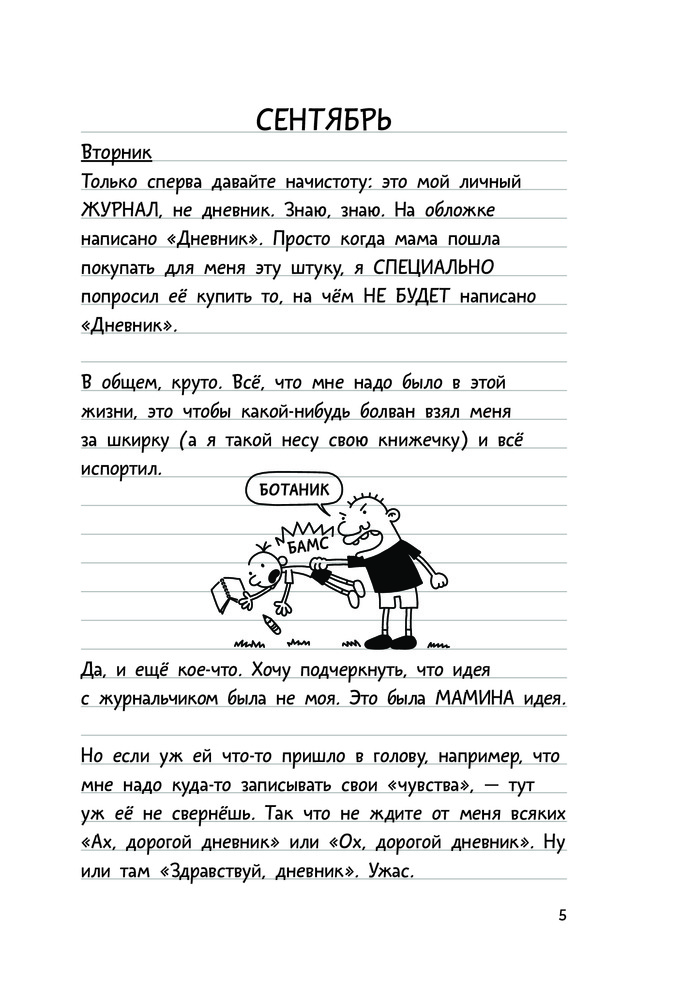 СЕНТЯБРЬ
Вторник
Только сперва давайте начистоту: это мой личный
ЖУРНАЛ, не дневник. Знаю, знаю. На обложке
написано «Дневник». Просто когда мама пошла
покупать для меня эту штуку, я СПЕЦИАЛЬНО
попросил её купить то, на чём НЕ БУДЕТ написано
«Дневник».
В общем, круто. Всё, что мне надо было в этой
жизни, это чтобы какой-нибудь болван взял меня
за шкирку (а я такой несу свою книжечку) и всё
испортил.
БОТАНИК
БАМС
Да, и ещё кое-что. Хочу подчеркнуть, что идея
с журнальчиком была не моя. Это была МАМИНА идея.
Но если уж ей что-то пришло в голову, например, что
мне надо куда-то записывать свои «чувства», — тут
уж её не свернёшь. Так что не ждите от меня всяких
«Ах, дорогой дневник» или «Ох, дорогой дневник». Ну
или там «Здравствуй, дневник». Ужас.
5